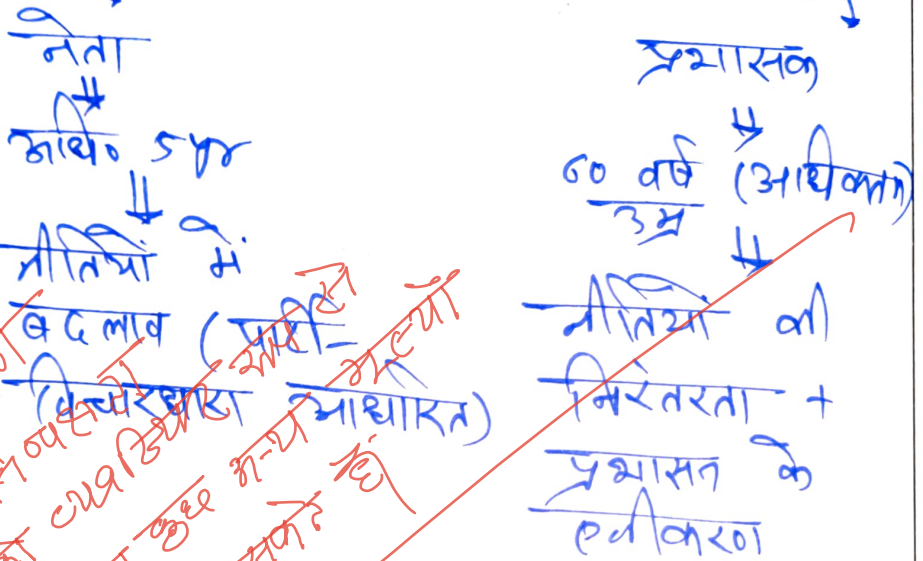 नेता
⇓
अधि० 5 yr
⇓
नीतियों में
बदलाव (पार्टी-
(विचारधारा आधारित)
↓
प्रशासक
⇓
60 वर्ष (अधिकतम)
उम्र
⇓
नीतियों की
निरंतरता +
प्रशासन के
एकीकरण
कुछ अन्य मूल्यों
सकते हैं।